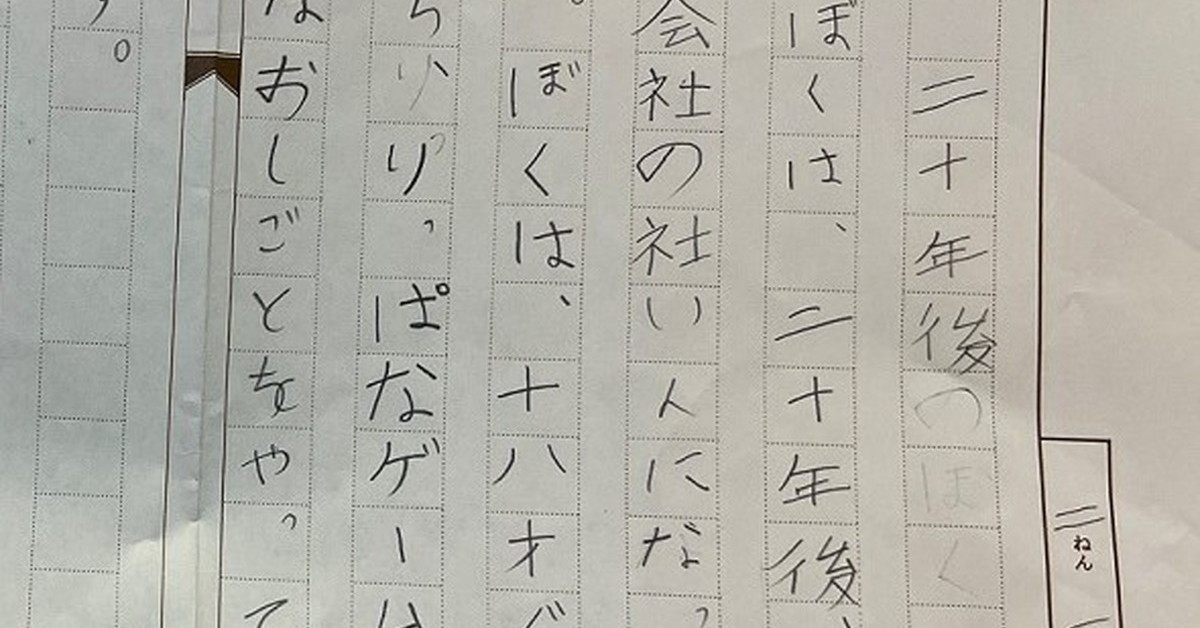 二十年後のぼく
ぼくは、二十年後、
会社の社いんになっ
。ぼくは、十八才
り、っぱなゲー
なおしごとをやって
。
二ねん